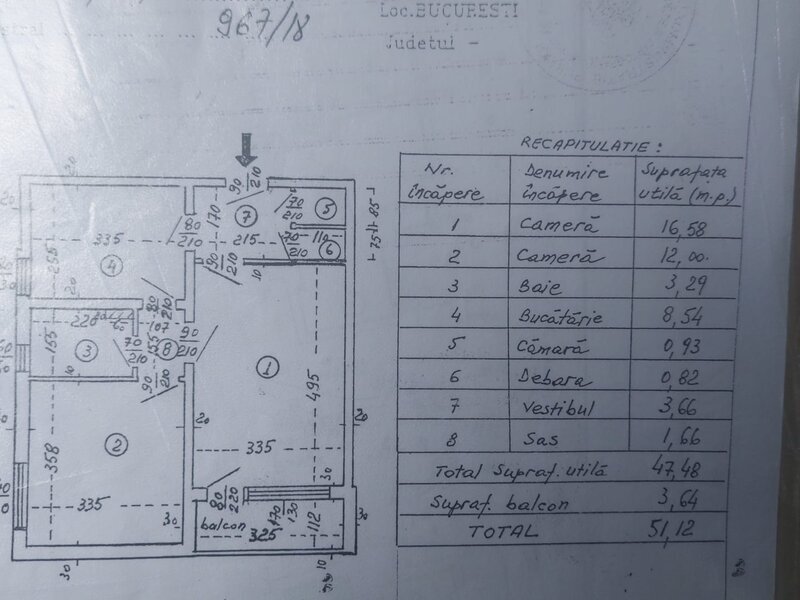 Loc.BUCURESTI
967/18
Judetui -
RECAPITULATIE :
Nr. încăpere Denumire încăpere Suprafata utilă (m.p.)
1 Cameră 16,58
2 Cameră 12,00
3 Baie 3,29
4 Bucătărie 8,54
5 Cămară 0,93
6 Debara 0,82
7 Vestibul 3,66
8 Sas 1,66
Total Supraf. utilă 47,48
Supraf. balcon 3,64
TOTAL 51,12
20
90 210
170
7
70 210
5
85
75
335
80 210
215
70 210
110
6
255
4
90 210
10
20
80 210
220
60
107
90 210
155
3
70 210
155
8
1
495
10
90 210
20
20
2
358
335
335
30
80 220
30
balcon
170 130
112
325
30
30
10